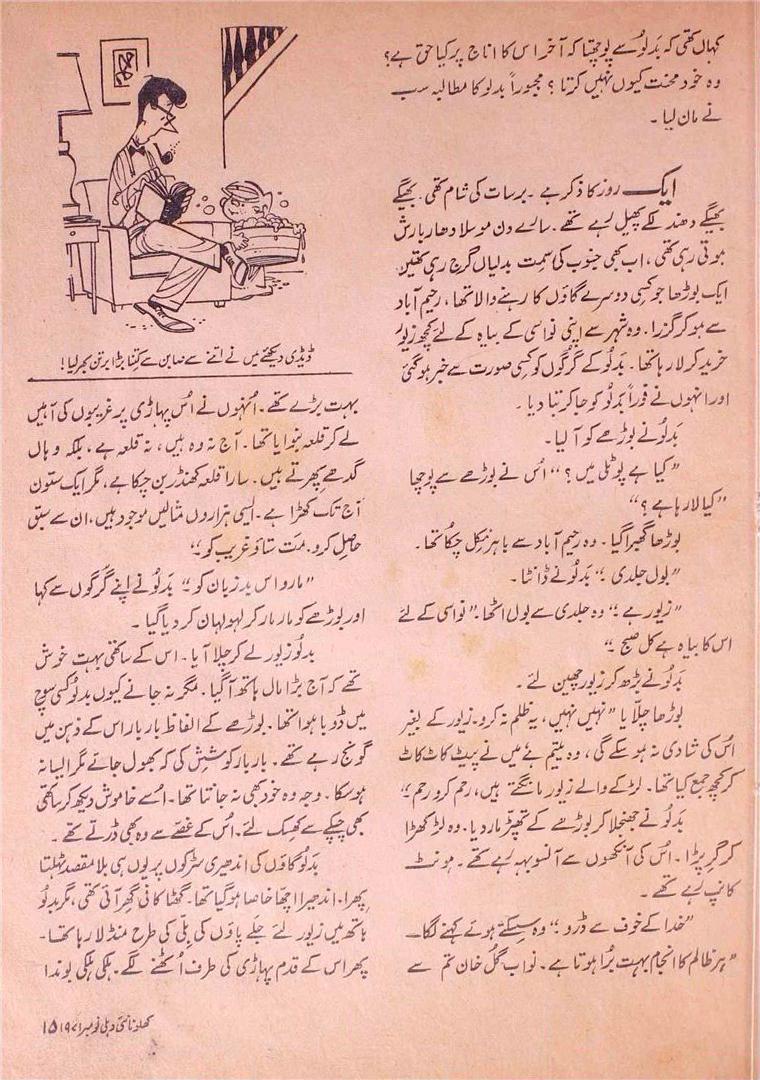 کہاں تھی کہ بدلُو سے پوچھتا کہ آخر اس کا اناج پر کیا حق ہے؟
وہ خود محنت کیوں نہیں کرتا ؟ مجبوراً بدلو کا مطالبہ سب
نے مان لیا ۔
ایک روز کا ذکر ہے ۔ برسات کی شام تھی۔ بھیگے
بھیگے دھندلکے پھیل رہے تھے ۔ سارے دن موسلا دھار بارش
ہوتی رہی تھی ، اب بھی جنوب کی سمت بدلیاں گرج رہی تھیں۔
ایک بوڑھا جو کسی دوسرے گاؤں کا رہنے والا تھا ، رحیم آباد
سے ہو کر گزرا۔ وہ شہر سے اپنی نواسی کے بیاہ کے لئے کچھ زیور
خرید کر لا رہا تھا ۔ بدلُو کے گُرگوں کو کسی صورت سے خبر ہو گئی
اور انہوں نے فوراً بدلُو کو جا کر بتا دیا ۔
بدلُو نے بوڑھے کو آ لیا۔
”کیا ہے پوٹلی میں ؟“ اُس نے بوڑھے سے پوچھا
”کیا لا رہا ہے ؟“
بوڑھا گھبرا گیا ۔ وہ رحیم آباد سے باہر نکل چکا تھا ۔
”بول جلدی ۔“ بدلُو نے ڈانٹا ۔
”زیور ہے ۔“ وہ جلدی سے بول اٹھا ۔”نواسی کے لئے
اس کا بیاہ ہے کل صبح ۔“
بدلُو نے بڑھ کر زیور چھین لئے ۔
بوڑھا چلّا یا ”نہیں نہیں ، یہ ظلم نہ کرو۔ زیور کے بغیر
اُس کی شادی نہ ہو سکے گی ، وہ یتیم ہے میں نے پیٹ کاٹ کاٹ
کر کچھ جمع کیا تھا۔ لڑکے والے زیور مانگتے ہیں، رحم کرو رحم۔“
بدلُو نے جھنجلا کر بوڑھے کے تھپڑ مار دیا۔ وہ لڑکھڑا
کر گر پڑا ۔ اس کی آنکھوں سے آنسو بہہ رہے تھے ۔ ہونٹ
کانپ رہے تھے ۔
”خدا کے خوف سے ڈرو ۔“ وہ سسکتے ہوئے کہنے لگا۔
”ہر ظالم کا انجام بہت بُرا ہوتا ہے ۔ نواب گُل خان تم سے
ڈیڈی دیکھئے میں نے اتنے سے صابن سے کتنا بڑا برتن بھر لیا !
بہت بڑے تھے ۔ اُنہوں نے اُس پہاڑی پر غریبوں کی آہیں
لے کر قلعہ بنوایا تھا ۔ آج نہ وہ ہیں ، نہ قلعہ ہے ، بلکہ وہاں
گدھے پھرتے ہیں ۔ سارا قلعہ کھنڈر بن چکا ہے ، مگر ایک ستون
آج تک کھڑا ہے ۔ ایسی ہزاروں مثالیں موجود ہیں ، ان سے سبق
حاصل کرو۔ مت ستاؤ غریب کو“
”مارو اس بد زبان کو ۔“ بدلُو نے اپنے گُرگوں سے کہا
اور بوڑھے کو مار مار کر لہولہان کر دیا گیا ۔
بدلُو زیور لے کر چلا آیا ۔ اس کے ساتھی بہت خوش
تھے کہ آج بڑا مال ہاتھ آ گیا ۔ مگر نہ جانے کیوں بدلُو کسی سوچ
میں ڈوبا ہوا تھا ۔ بوڑھے کے الفاظ بار بار اس کے ذہن میں
گونج رہے تھے ۔ بار بار کوشش کی کہ بھول جائے مگر ایسا نہ
ہو سکا ۔ وجہ وہ خود بھی نہ جانتا تھا ۔ اُسے خاموش دیکھ کر ساتھی
بھی چپکے سے کھسک لئے۔ اُس کے غصّے سے وہ بھی ڈرتے تھے ۔
بدلُو گاؤں کی اندھیری سڑکوں پر یوں ہی بلا مقصد ٹہلتا
پھرا۔ اندھیرا اچھا خاصا ہو گیا تھا ۔ گھٹا کافی گھر آئی تھی ، مگر بدلُو
ہاتھ میں زیور لئے جلے پاؤں کی بلّی کی طرح منڈلا رہا تھا۔
پھر اس کے قدم پہاڑی کی طرف اُٹھنے لگے۔ ہلکی ہلکی بوندا
کھلونا نئی دہلی نومبر ۱۹۷۱ ۱۵